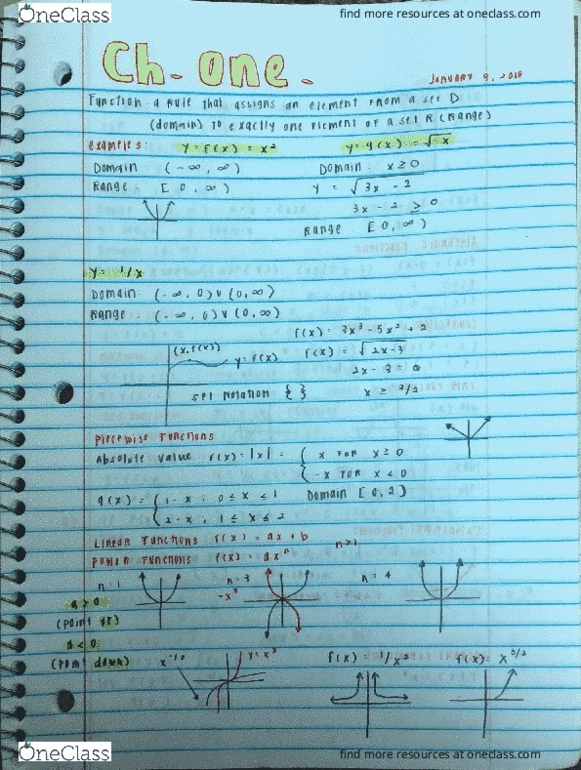 OneClass
find more resources at oneclass.com
Ch. one.
January 9, 2018
Function - a rule that assigns an element from a set D
(domain) to exactly one element of a set R (Range)
examples: y = f(x) = x² y = g(x) = √x
Domain (-∞, ∞) Domain: x ≥ 0
Range [0, ∞) y = √3x - 2
3x - 2 ≥ 0
Range [0, ∞)
y = 1/x
Domain: (-∞, 0) ∪ (0, ∞)
Range: (-∞, 0) ∪ (0, ∞)
f(x) = 3x³ - 5x² + 2
(x, f(x)) y = f(x) f(x) = √2x-3
2x - 3 = 0
set notation { } x ≥ 3/2
piecewise functions
Absolute value f(x) = |x| = { x for x ≥ 0
-x for x < 0
g(x) = { 1-x, 0 ≤ x ≤ 1 Domain [0, 2]
2-x, 1 ≤ x ≤ 2
Linear functions f(x) = ax + b
power functions f(x) = axⁿ n>1
n = 3 n = 4
-x³
a > 0
(point up)
a < 0
(point down) y = x³ f(x) = 1/x² f(x) = x^3/2
OneClass
find more resources at oneclass.com